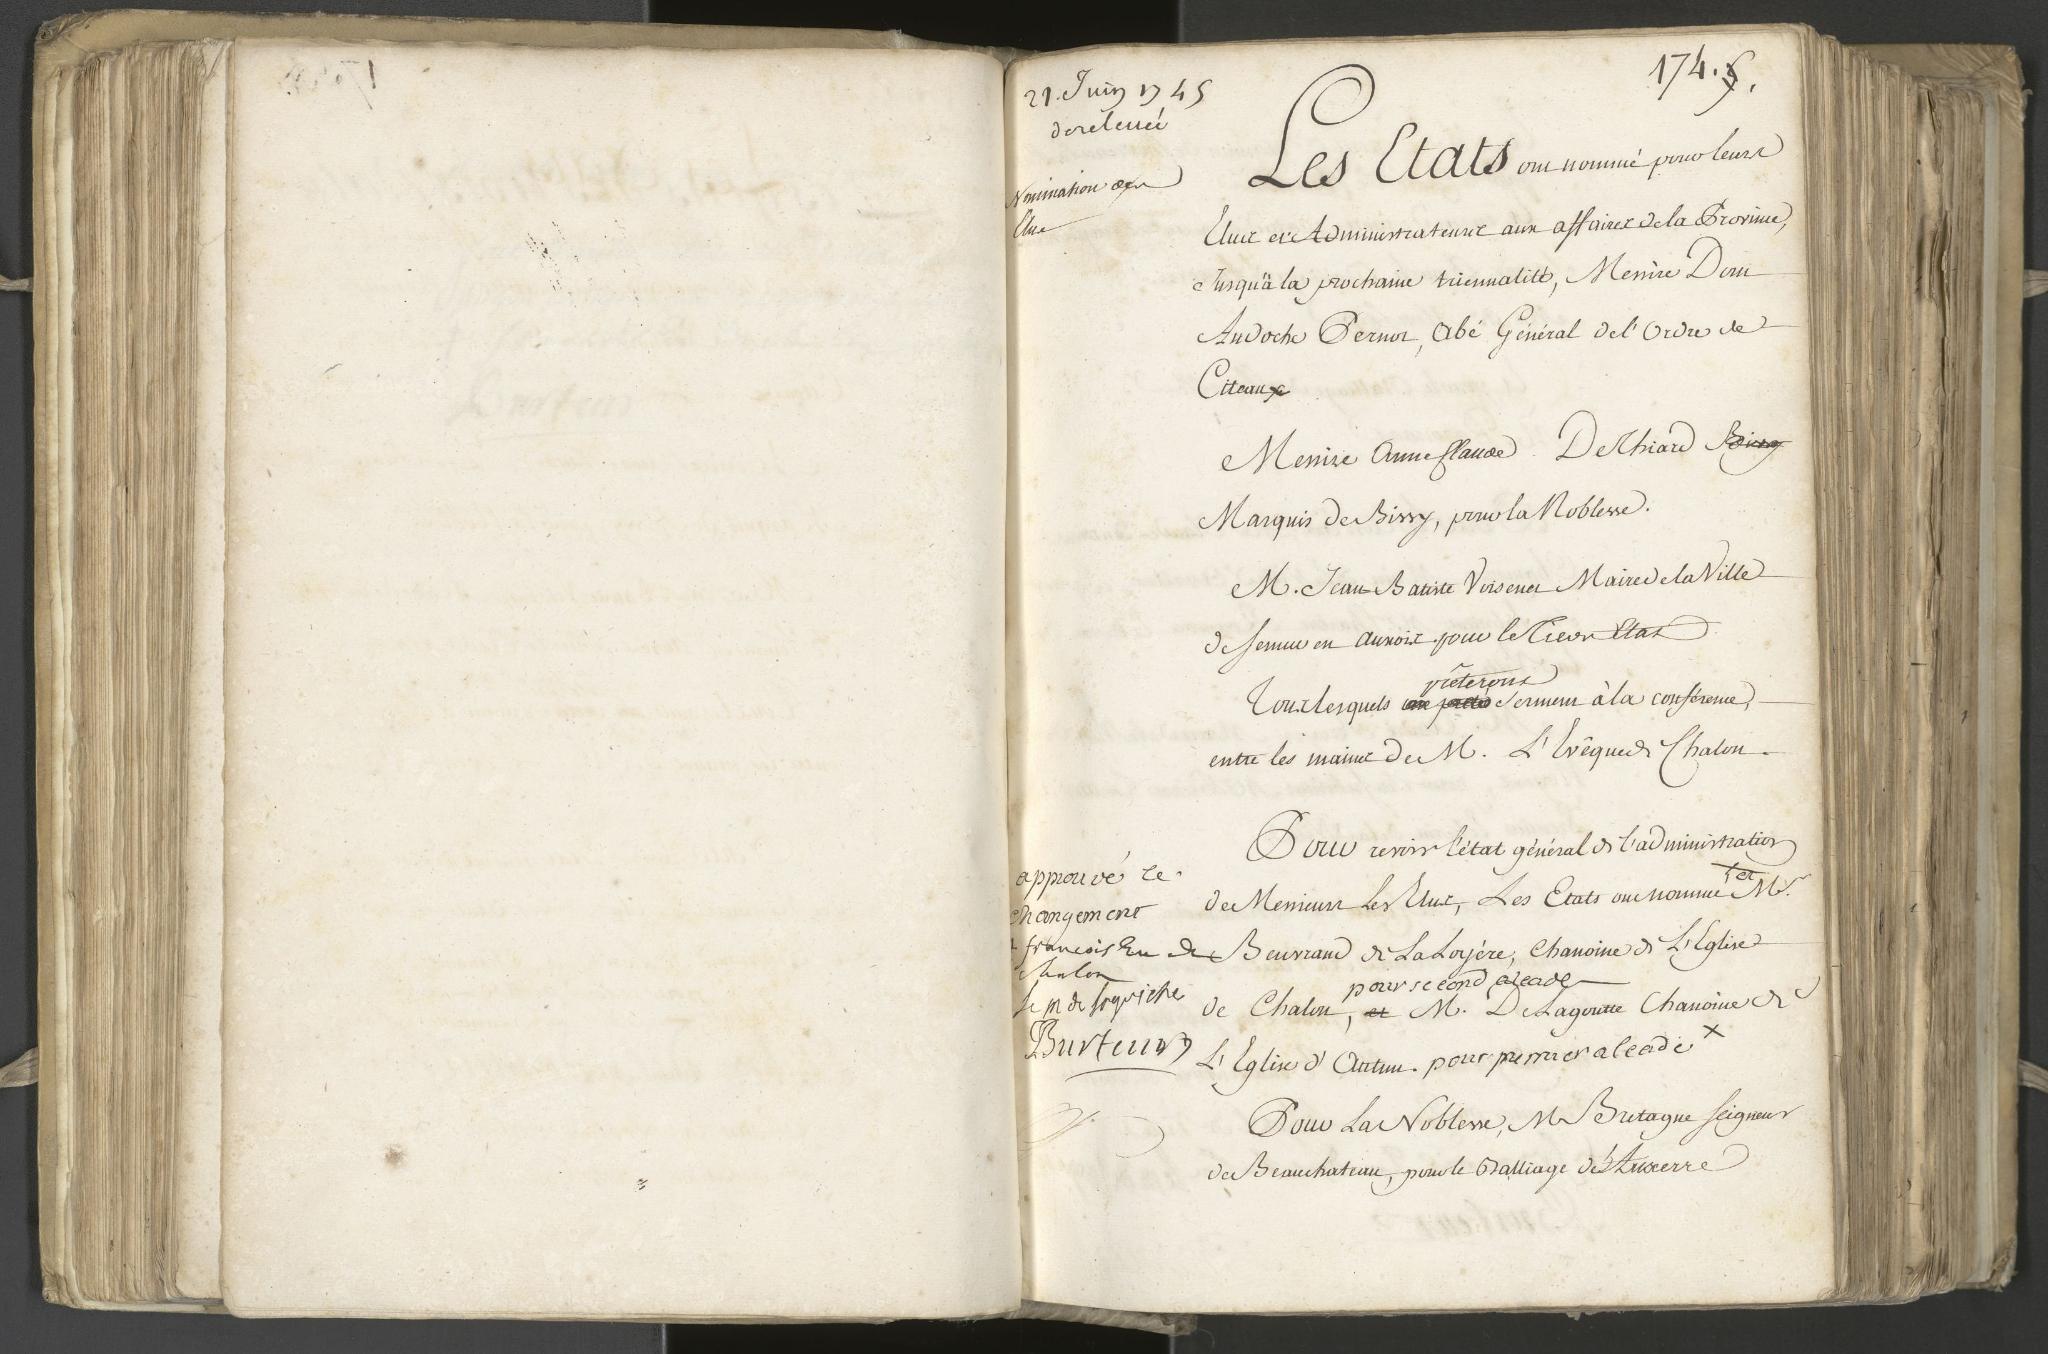 1745.
21. Juin 1745
de relevée
Nomination des
Elus
Les Etats ont nommé pour leurs
Elus et Administrateurs aux affaires de la Province,
Jusqu'à la prochaine triennalité, Messire Dom
Andoche Pernot, Abé Général de l'Ordre de
Citeaux
Messire Anne Claude De Thiard Bissy
Marquis de Bissy, pour la Noblesse.
M. Jean Batiste Voisenet Maire de la Ville
de Semur en Auxois pour le Tiers Etat
prêteront
Tous lesquels ont preté serment à la conférence,
entre les mains de M. L'Evêque de Chalon.
Pour revoir l'état général de l'administration
de Messieurs Les Elus, Les Etats ont nommé Mr.
Beuvrand de La Loyére, Chanoine de L'Eglise
pour second alcade
de Chalon, et M. De Lagoutte Chanoine de
L'Eglise d'Autun. pour premier alcade x
Pour La Noblesse, M Bretagne Seigneur
de Beauchateau, pour le Balliage d'Auxerre
approuvé le
changement
+ françois Ev. de
Chalon
Burteur